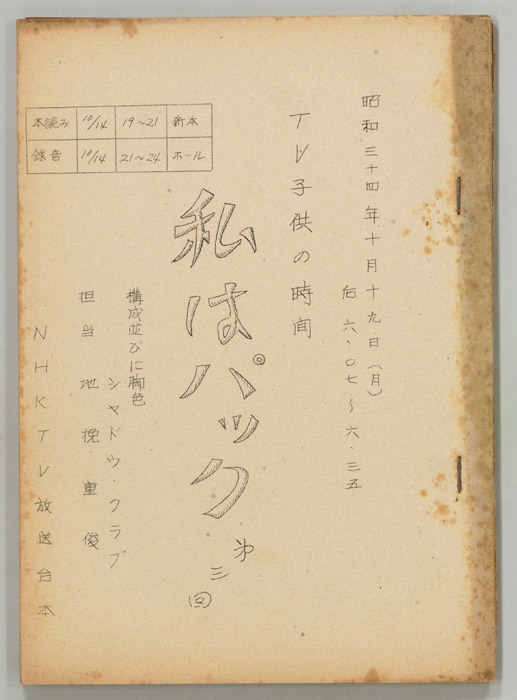 昭和三十四年十月十九日(月)
后 六・〇七〜六・三五
TV子供の時間
私はパック
第三回
構成並びに脚色
シャドウ・クラブ
担当 地挽重俊
NHKTV放送台本
本読み 10/14 19~21 新本
録音 10/14 21~24 ホール